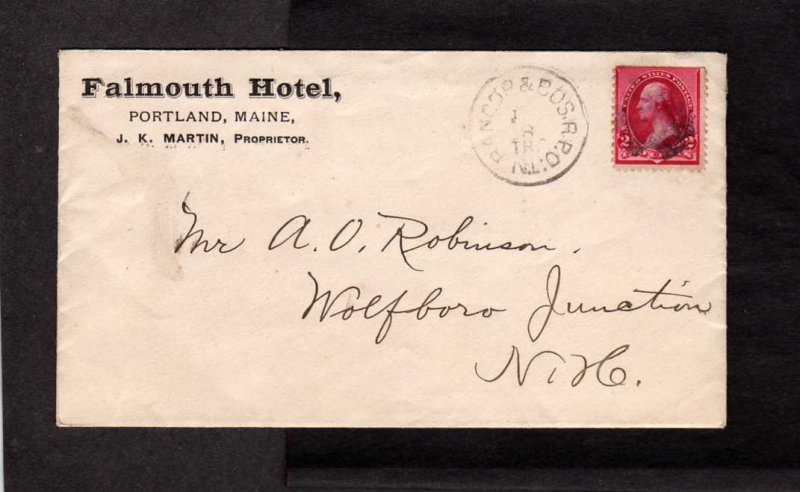 Falmouth Hotel,
PORTLAND, MAINE,
J. K. MARTIN, PROPRIETOR.
BANGOR & BOS. R.P.O.
N.T.
UNITED STATES POSTAGE
2 2
Mr A. O. Robinson.
Wolfboro Junction
N. H.